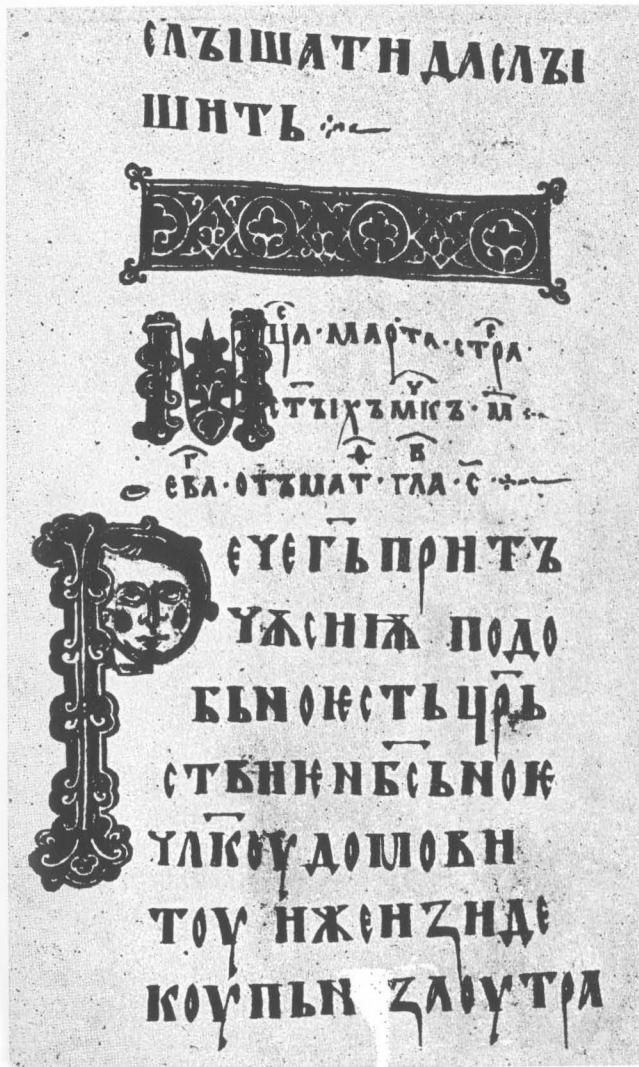 слꙑшати даслꙑ
шить
мⷭ҇ца·марта·стрⷭ҇а·
стꙑхъмⷱ҇къ·м҃·
еⷢ҇ва·отъмаⷴ҇т·глⷡ҇а·с҃·
Речег҃ьпритъ
чѫсниѭ подо
бьноѥстьцр҃ь
ствиѥнб҃сьноѥ
чл҃коудомови
тоу ижеизиде
коупьн заоутра